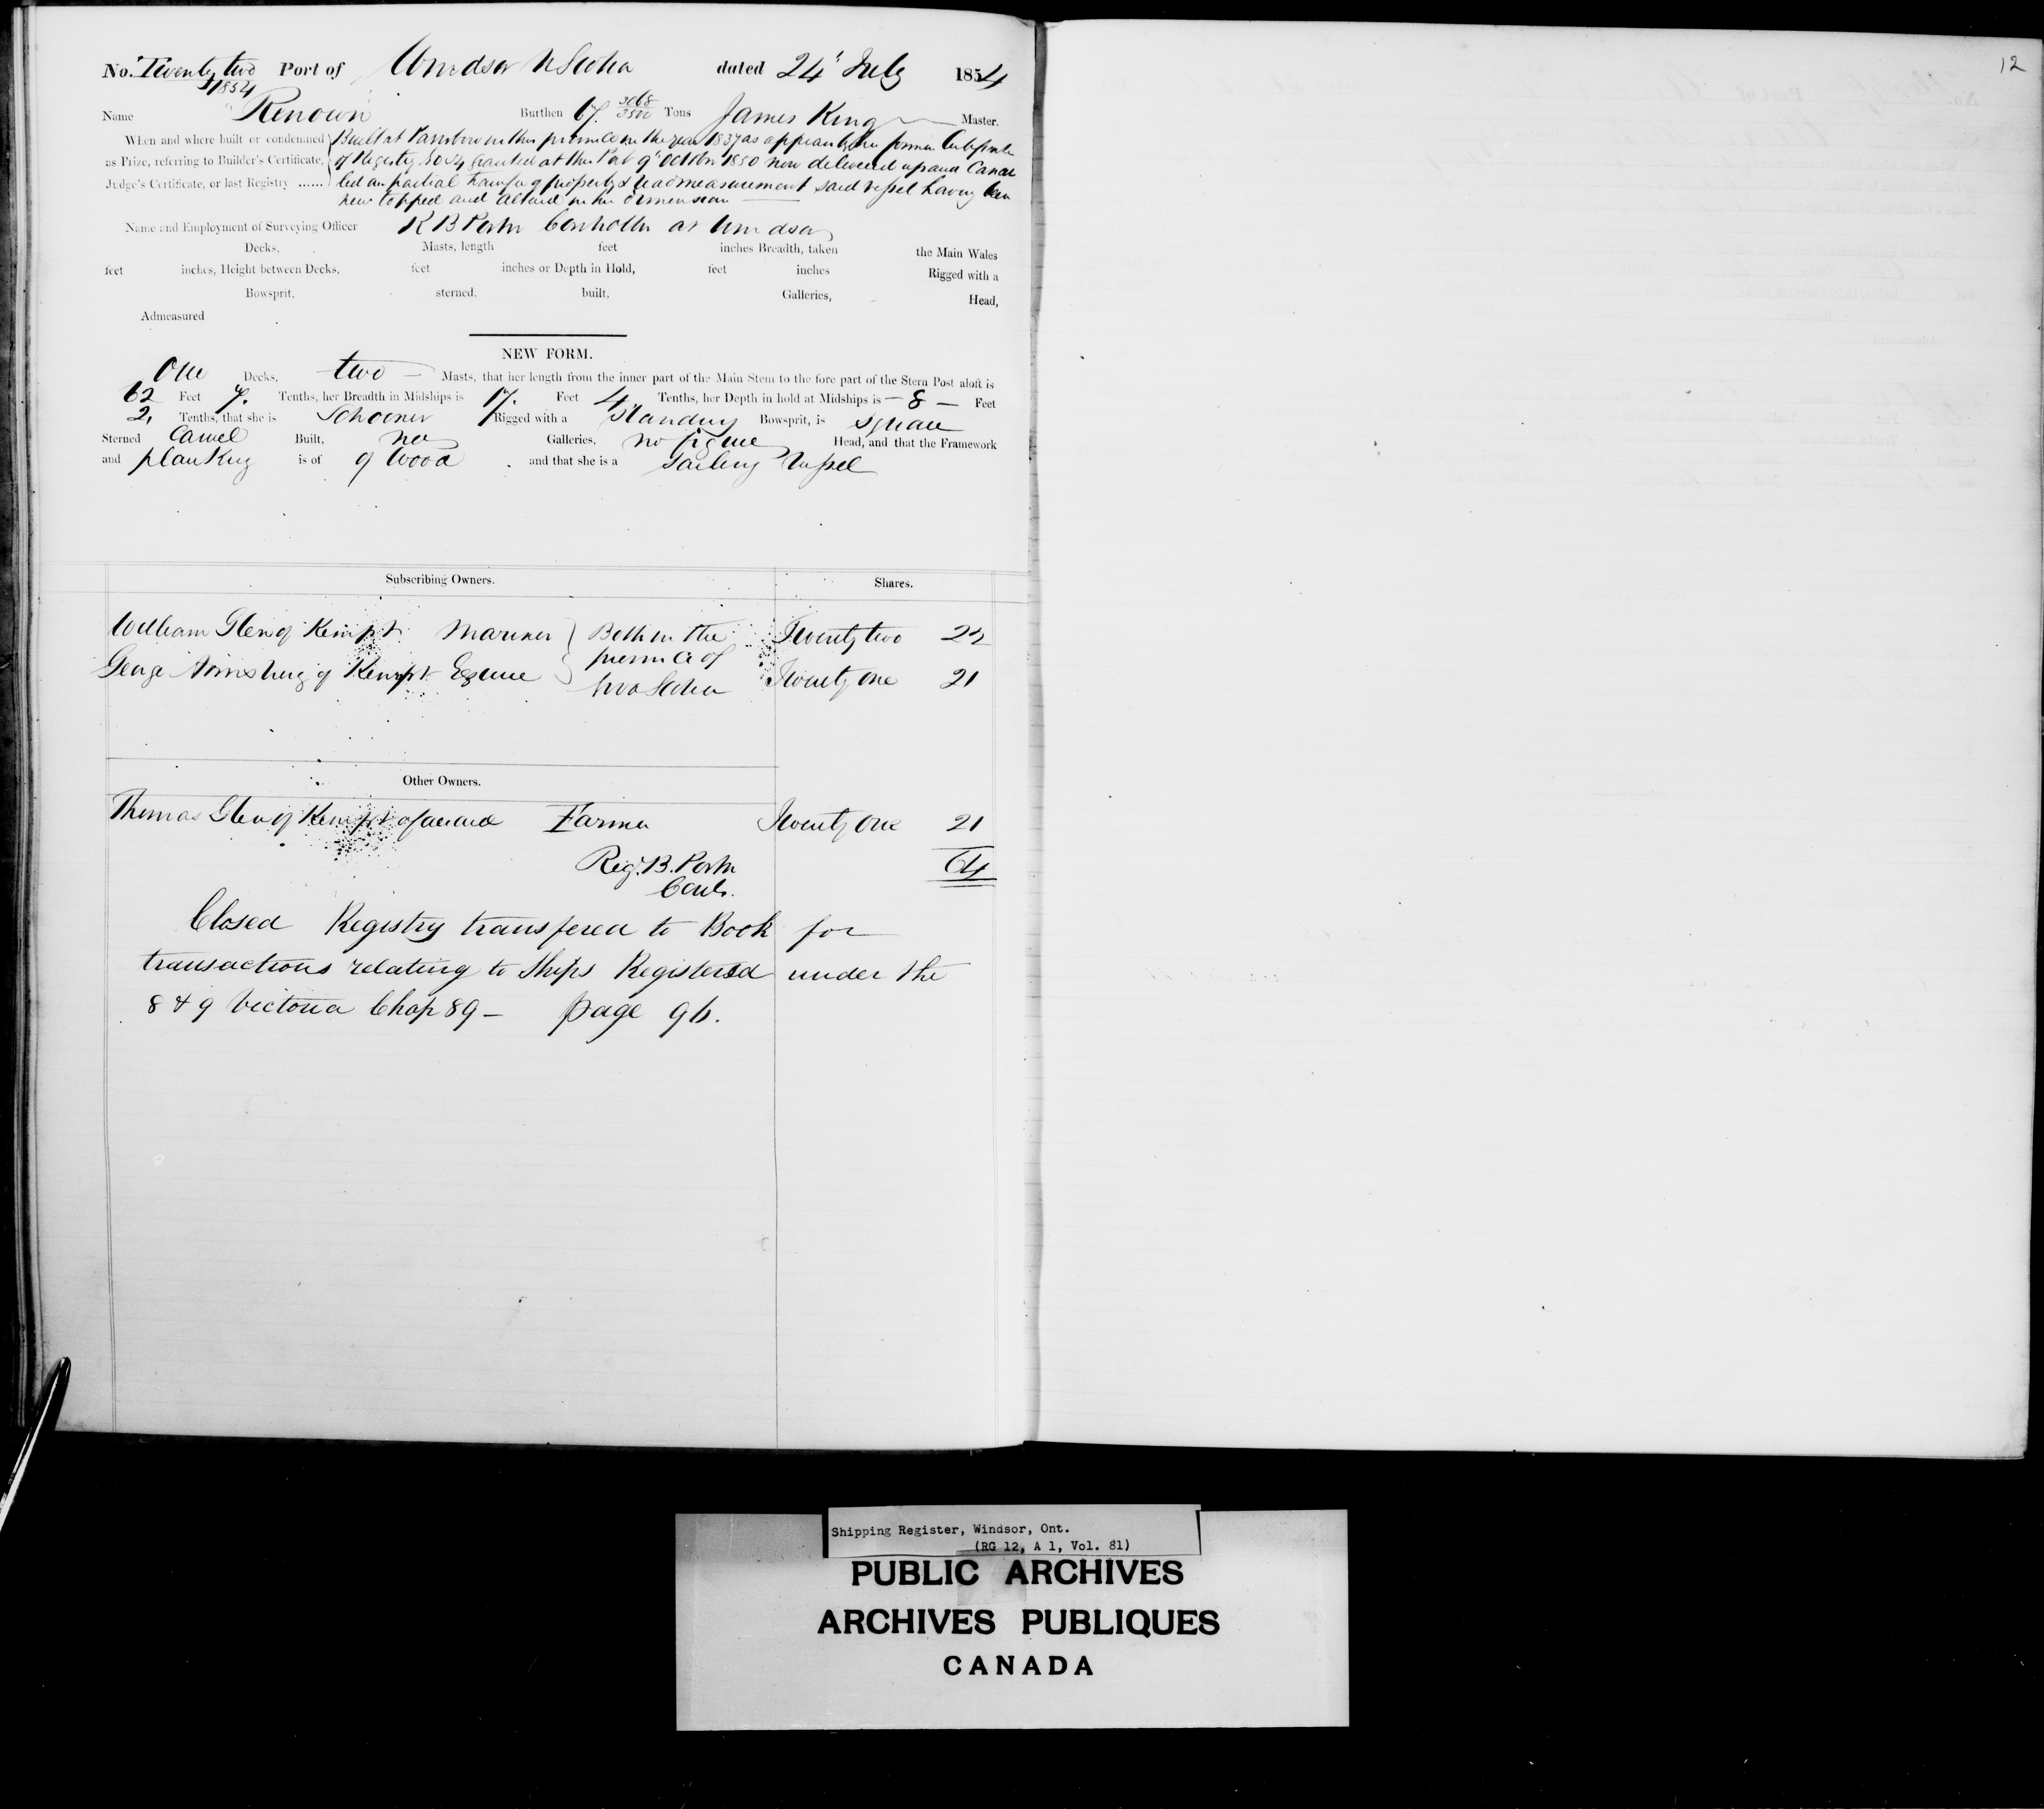 No. Twenty two Port of Windsor N Scotia dated 24' July 1854
1854
Name "Renown" Burthen 67 3068/3500 Tons James King Master.
When and where built or condemned Built at Parrsboro in this province in the year 1837 as appears by her former Certificate
as Prize, referring to Builder's Certificate, of Registry No 24 granted at this Port 9th October 1850 now delivered up and Cancel
Judge's Certificate, or last Registry ...... led on partial transfer of property & readmeasurement said vessel having been
new topped and altered in her dimension
Name and Employment of Surveying Officer R B Porter Controller at Windsor
Decks, Masts, length feet inches Breadth, taken the Main Wales
feet inches, Height between Decks, feet inches or Depth in Hold, feet inches Rigged with a
Bowsprit, sterned, built, Galleries, Head,
Admeasured
NEW FORM.
One Decks, two Masts, that her length from the inner part of the Main Stem to the fore part of the Stern Post aloft is
62 Feet 7. Tenths, her Breadth in Midships is 17. Feet 4 Tenths, her Depth in hold at Midships is — 8 — Feet
2, Tenths, that she is Schooner Rigged with a Standing Bowsprit, is Square
Sterned Carvel Built, no Galleries, no figure Head, and that the Framework
and planking is of of Wood and that she is a Sailing Vessel
Subscribing Owners. Shares.
William Glen of Kempt Mariner } Both in the Twenty two 22
George Armstrong of Kempt Esquire province of Twenty one 21
Nova Scotia
Other Owners.
Thomas Glen of Kempt aforesaid Farmer Twenty One 21
64
Reg. B. Porter
Contr.
Closed Registry transfered to Book for
transactions relating to Ships Registered under the
8 & 9 Victoria Chap 89 — page 96.
12
Shipping Register, Windsor, Ont.
(RG 12, A 1, Vol. 81)
PUBLIC ARCHIVES
ARCHIVES PUBLIQUES
CANADA